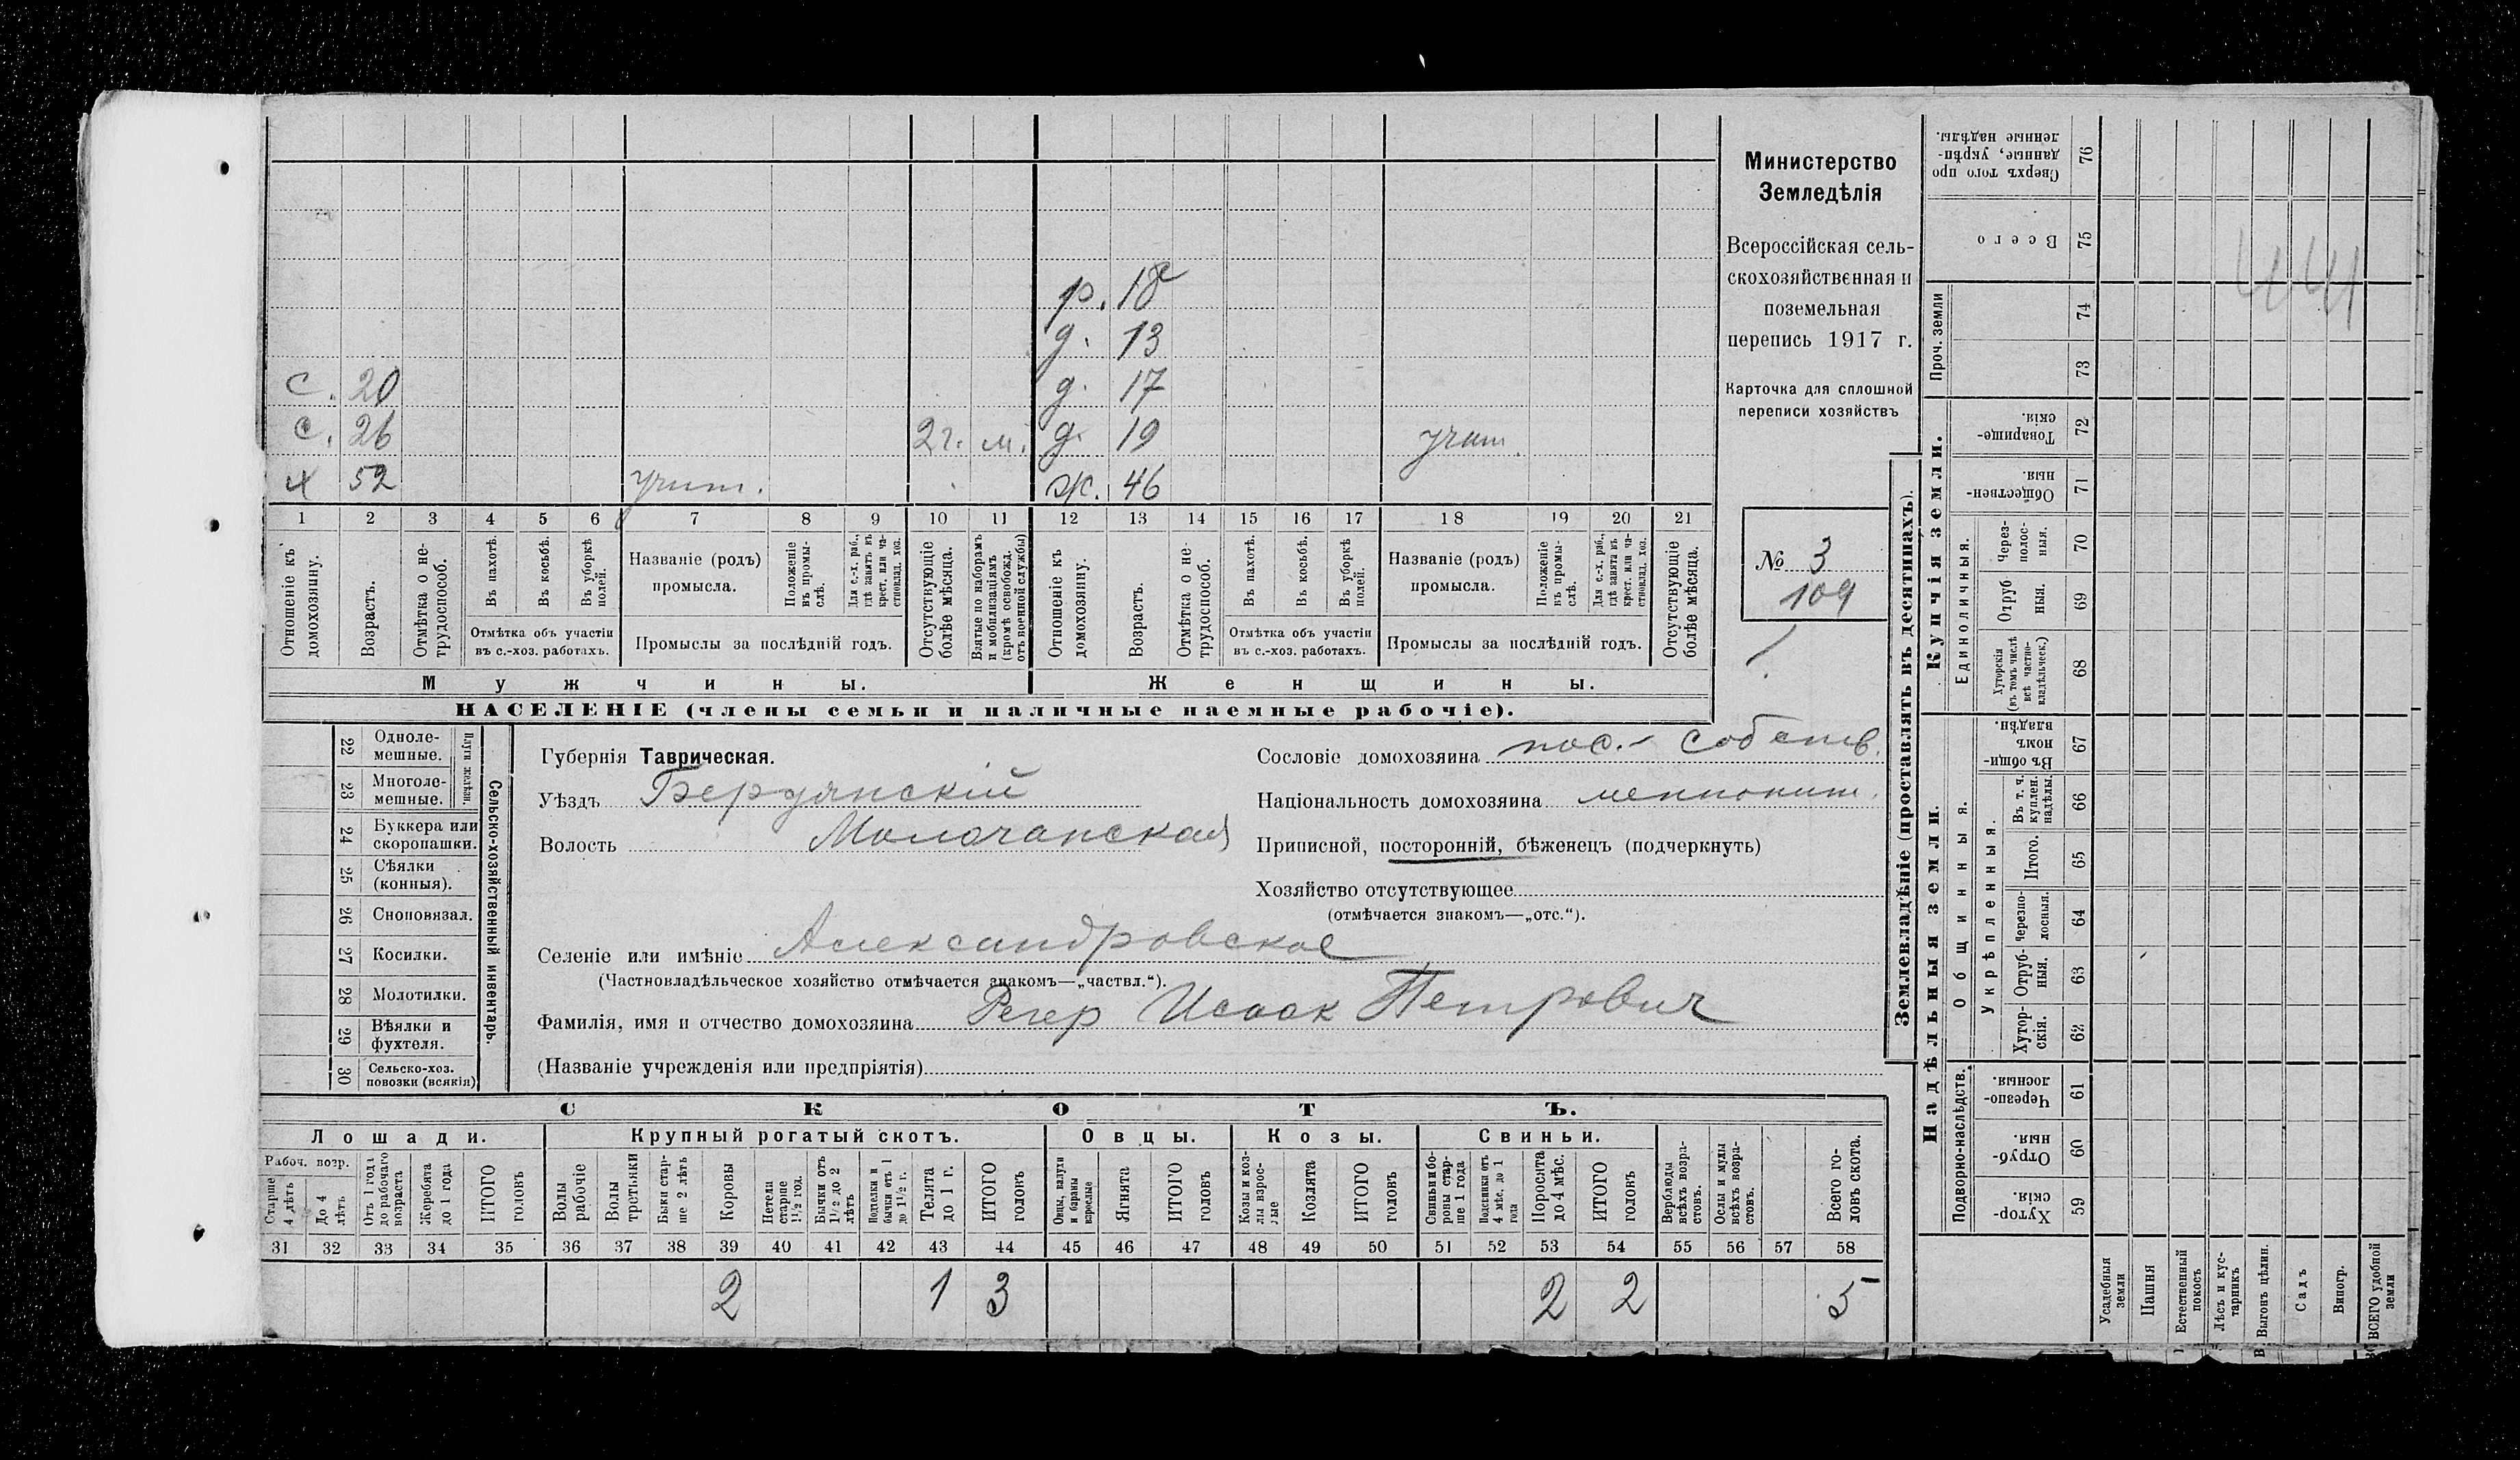 р. 18
д. 13
с. 20 д. 17
с. 26 2 г. м. д. 19 учит.
х 52 учит. ж. 46
1 2 3 4 5 6 7 8 9 10 11 12 13 14 15 16 17 18 19 20 21
Отношеніе къ домохозяину.
Возрастъ.
Отмѣтка о нетрудоспособ.
Въ пахотѣ.
Въ косьбѣ.
Въ уборкѣ полей.
Отмѣтка объ участіи
въ с.-хоз. работахъ.
Названіе (родъ)
промысла.
Положеніе въ промыслѣ.
Для с.-х. раб., гдѣ занятъ въ крест. или частновлад. хоз.
Промыслы за послѣдній годъ.
Отсутствующіе болѣе мѣсяца.
Взятые по наборамъ и мобилизаціямъ (кромѣ освобожд. отъ военной службы)
Отношеніе къ домохозяину.
Возрастъ.
Отмѣтка о нетрудоспособ.
Въ пахотѣ.
Въ косьбѣ.
Въ уборкѣ полей.
Отмѣтка объ участіи
въ с.-хоз. работахъ.
Названіе (родъ)
промысла.
Положеніе въ промыслѣ.
Для с.-х. раб., гдѣ занята въ крест. или частновлад. хоз.
Промыслы за послѣдній годъ.
Отсутствующіе болѣе мѣсяца.
Мужчины. Женщины.
НАСЕЛЕНІЕ (члены семьи и наличные наемные рабочіе).
Министерство
Земледѣлія
Всероссійская сель-
скохозяйственная и
поземельная
перепись 1917 г.
Карточка для сплошной
переписи хозяйствъ
№ 3
109
Сельско-хозяйственный инвентарь.
Плуги желѣзн.
22 Одноле-
мешные.
23 Многоле-
мешные.
24 Буккера или
скоропашки.
25 Сѣялки
(конныя).
26 Сноповязал.
27 Косилки.
28 Молотилки.
29 Вѣялки и
фухтеля.
30 Сельско-хоз.
повозки (всякія)
Губернія Таврическая.
Уѣздъ Бердянскій
Волость Молочанская
Селеніе или имѣніе Александровское
(Частновладѣльческое хозяйство отмѣчается знакомъ—„частвл.“).
Фамилія, имя и отчество домохозяина Регер Исаак Петрович
(Названіе учрежденія или предпріятія)
Сословіе домохозяина пос.- собств.
Національность домохозяина меннонит.
Приписной, посторонній, бѣженецъ (подчеркнуть)
Хозяйство отсутствующее
(отмѣчается знакомъ—„отс.“).
СКОТЪ.
Лошади. Крупный рогатый скотъ. Овцы. Козы. Свиньи.
Рабоч. возр.
Старше 4 лѣтъ
До 4 лѣтъ
Отъ 1 года до рабочаго возраста
Жеребята до 1 года
ИТОГО головъ
Волы рабочіе
Волы третьяки
Быки старше 2 лѣтъ
Коровы
Нетели старше 1½ год.
Бычки отъ 1½ до 2 лѣтъ
Подтелки и бычки отъ 1 до 1½ г.
Телята до 1 г.
ИТОГО головъ
Овцы, валухи и бараны взрослые
Ягнята
ИТОГО головъ
Козы и козлы взрослые
Козлята
ИТОГО головъ
Свиньи и боровы старше 1 года
Подсвинки отъ 4 мѣс. до 1 года
Поросята до 4 мѣс.
ИТОГО головъ
Верблюды всѣхъ возрастовъ.
Ослы и мулы всѣхъ возрастовъ.
Всего головъ скота.
31 32 33 34 35 36 37 38 39 40 41 42 43 44 45 46 47 48 49 50 51 52 53 54 55 56 57 58
2 1 3 2 2 5
Землевладѣніе (проставлять въ десятинахъ).
Купчія земли.
Надѣльныя земли.
Сверхъ того проданные, укрѣпленные надѣлы. 76
Всего 75
Проч. земли 74
73
Товарищескія. 72
Общественныя. 71
Единоличныя.
Черезполосныя. 70
Отрубныя. 69
Хуторскія (въ томъ числѣ всѣ частновладѣльческ.) 68
Общинныя.
Въ общинномъ владѣн. 67
Укрѣпленныя.
Въ т. ч. куплен. надѣлы. 66
Итого. 65
Черезполосныя. 64
Отрубныя. 63
Хуторскія. 62
Подворно-наслѣдств.
Черезполосныя. 61
Отрубныя. 60
Хуторскія. 59
Усадебныя земли
Пашня
Естественный покосъ
Лѣсъ и кустарникъ
Выгонъ цѣлин.
Садъ
Виногр.
ВСЕГО удобной земли